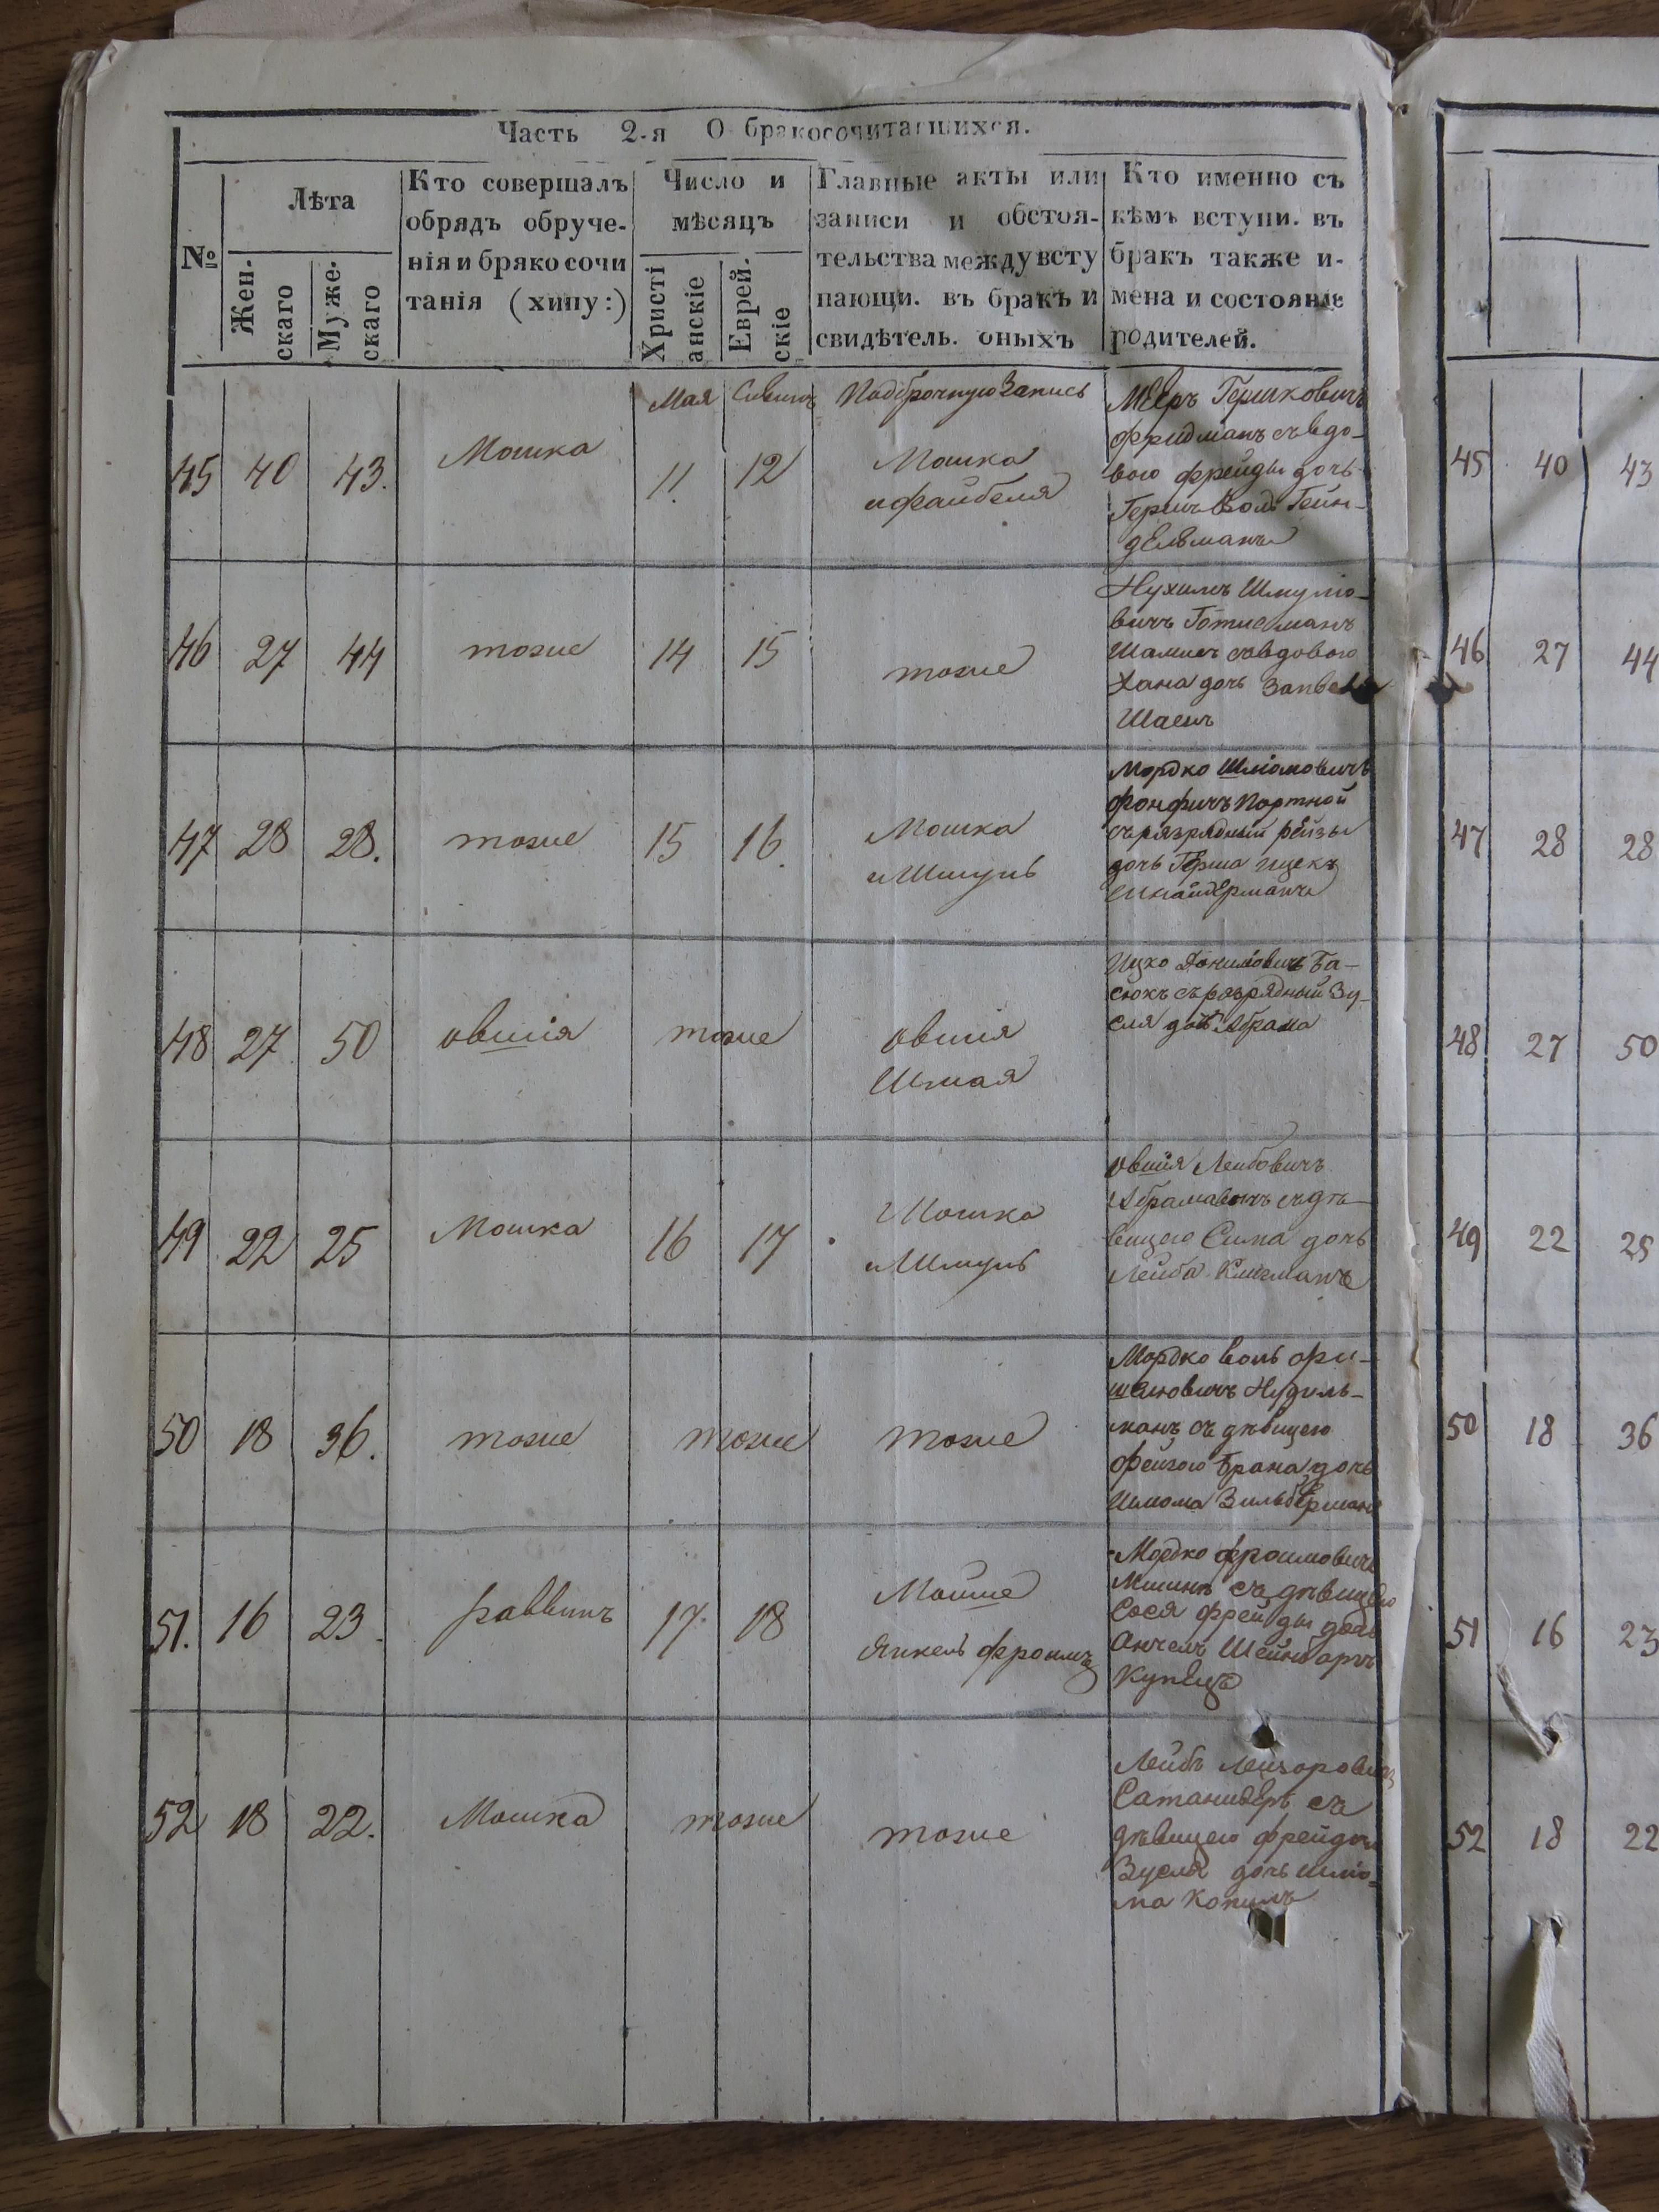 Часть 2-я О бракосочитавшихся.
№
Лѣта
Жен-
скаго
Муже-
скаго
Кто совершалъ
обрядъ обруче-
нія и бряко сочи
танія (хипу:)
Число и
мѣсяцъ
Христі
анскіе
Еврей-
скіе
Главные акты или
записи и обстоя-
тельства между всту
пающи. въ бракъ и
свидѣтель. оныхъ
Кто именно съ
кѣмъ вступи. въ
бракъ также и-
мена и состояніе
родителей.
45 40 43. Мошка
Мая Сивинъ
11. 12
Запись
Мошка
и файбеля
Меръ Гершковичъ
фридманъ съ вдо-
вою фрейды дочь
Герша Волъ Гейн-
дельмана
46 27 44 тоже 14 15 тоже
Нухимъ Шмулю-
вичъ
съ вдовою
Хана дочь
47 28 28. тоже 15 16.
Мошка
и Шмуль
Мордко Шліомовичъ
Портной
съ разрядный рейзы
дочь Герша Ицекъ
Шнайдерманъ
48 27 50 овшія тоже
овшія
Шмая
Ицко Ба-
сюкъ съ разрядный Зу-
сля дочь Абрама
49 22 25 Мошка 16 17
Мошка
и Шмуль
овшія Лейбовичъ
Абрамовичъ съ дѣ-
вицею Сима дочь
Лейба
50 18 36. тоже тоже тоже
Мордко волъ
Нудиль-
манъ съ дѣвицею
фейгою Брана дочь
Шлиома Зильберманъ
51. 16 23. раввинъ 17. 18
Мойше
Янкель фроимъ
Мордко фроимовичъ
съ дѣвицею
Сося фрейды дочь
Анчель
Купецъ
52 18 22. Мошка тоже тоже
Лейбъ Лейзоровичъ
Сатановеръ съ
дѣвицею фрейды
Зусля дочь Шліо-
ма
45 40 43
46 27 44
47 28 28
48 27 50
49 22 25
50 18 36
51 16 23
52 18 22